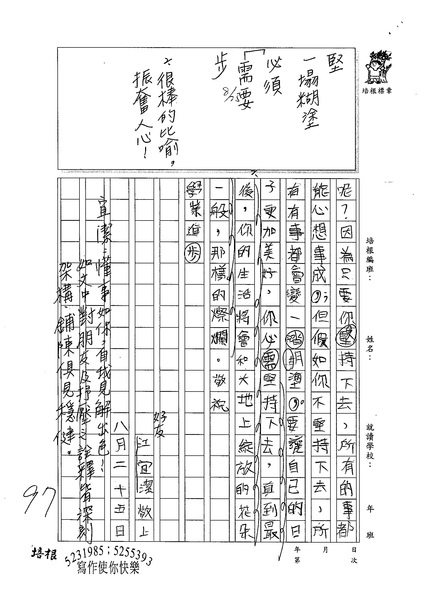 堅
一塌糊塗
必須
「需要
步
8/25
※很棒的比喻，
振奮人心！
培根標章
培根編班：
姓名：
就讀學校：
年　班
年　月　日
第　次
呢？因為只要你堅持下去，所有的事都
能心想事成；但假如你不堅持下去，所
有事都會變一
塗；要讓自己的日
子更加美好，你必需堅持下去，直到最
後，你的生活將會和大地上綻放的花朵
一般，那樣的燦爛。敬祝
學業進步
好友
江宜潔敬上
八月二十五日
宜潔：懂事如你，自我見解出色！
如文中對朋友及抒壓之詮釋皆深刻
架構、鋪陳俱見穩健。
97
培根
5231985；5255393
寫作使你快樂